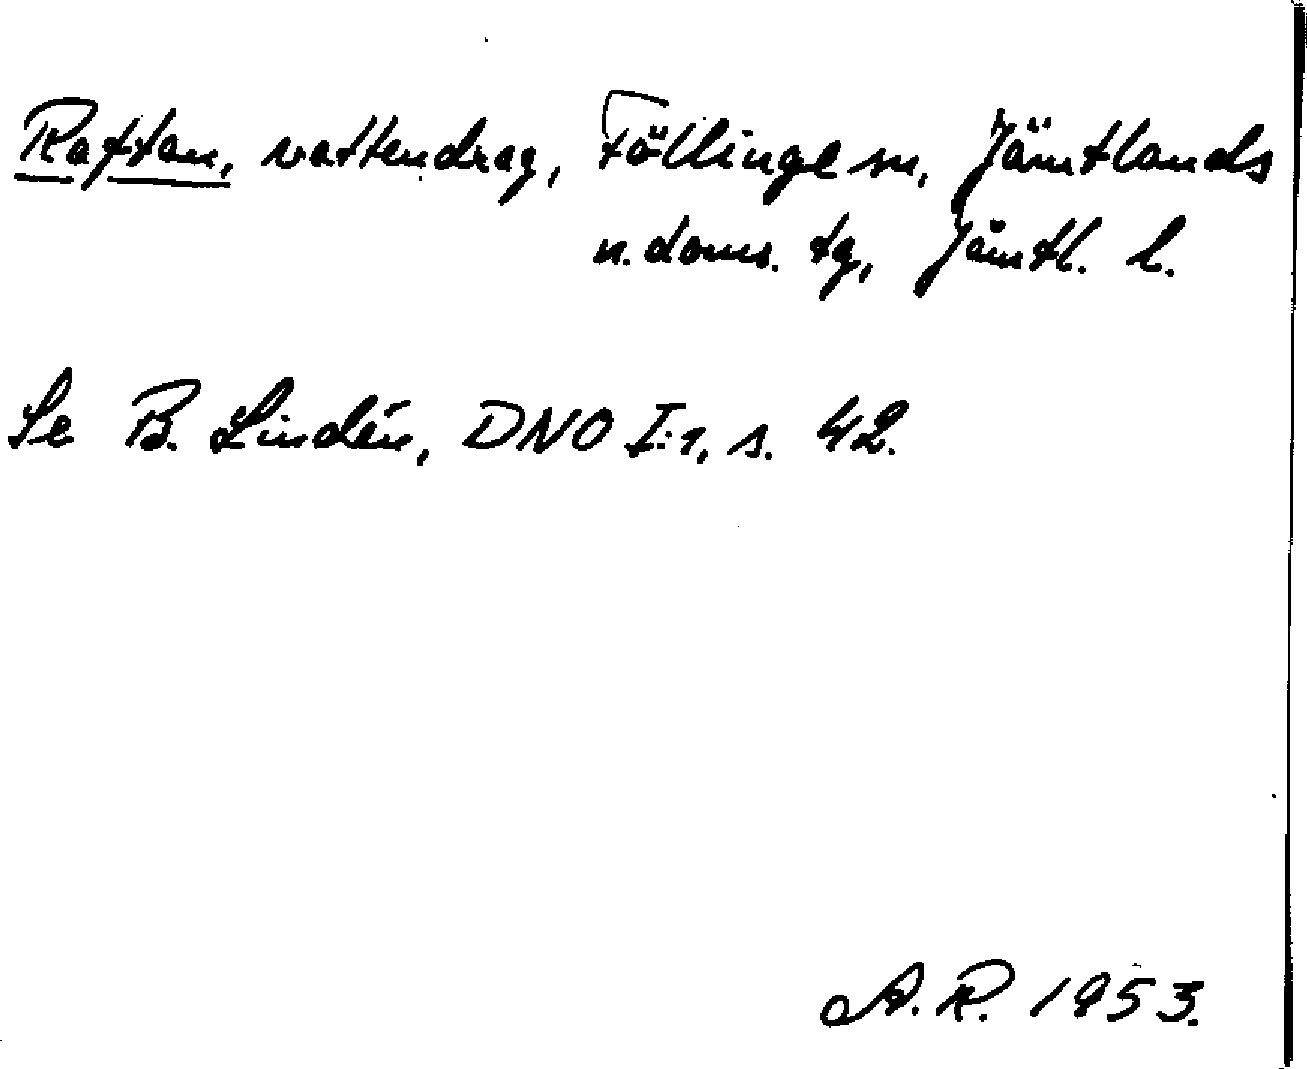 Raftan, vattendrag, Föllinge sn, Jämtlands
n. doms. tg, Jämtl. l.
Se B. Lindén, DNO I:1, s. 42.
A.R. 1953.